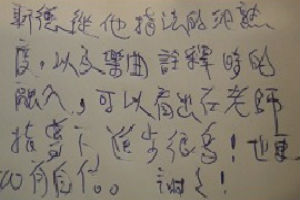 新德,從他指法的純熟
度,以及樂曲詮釋時的
融入,可以看出在老師
指導下進步很多!也更
加有自信。 謝老!